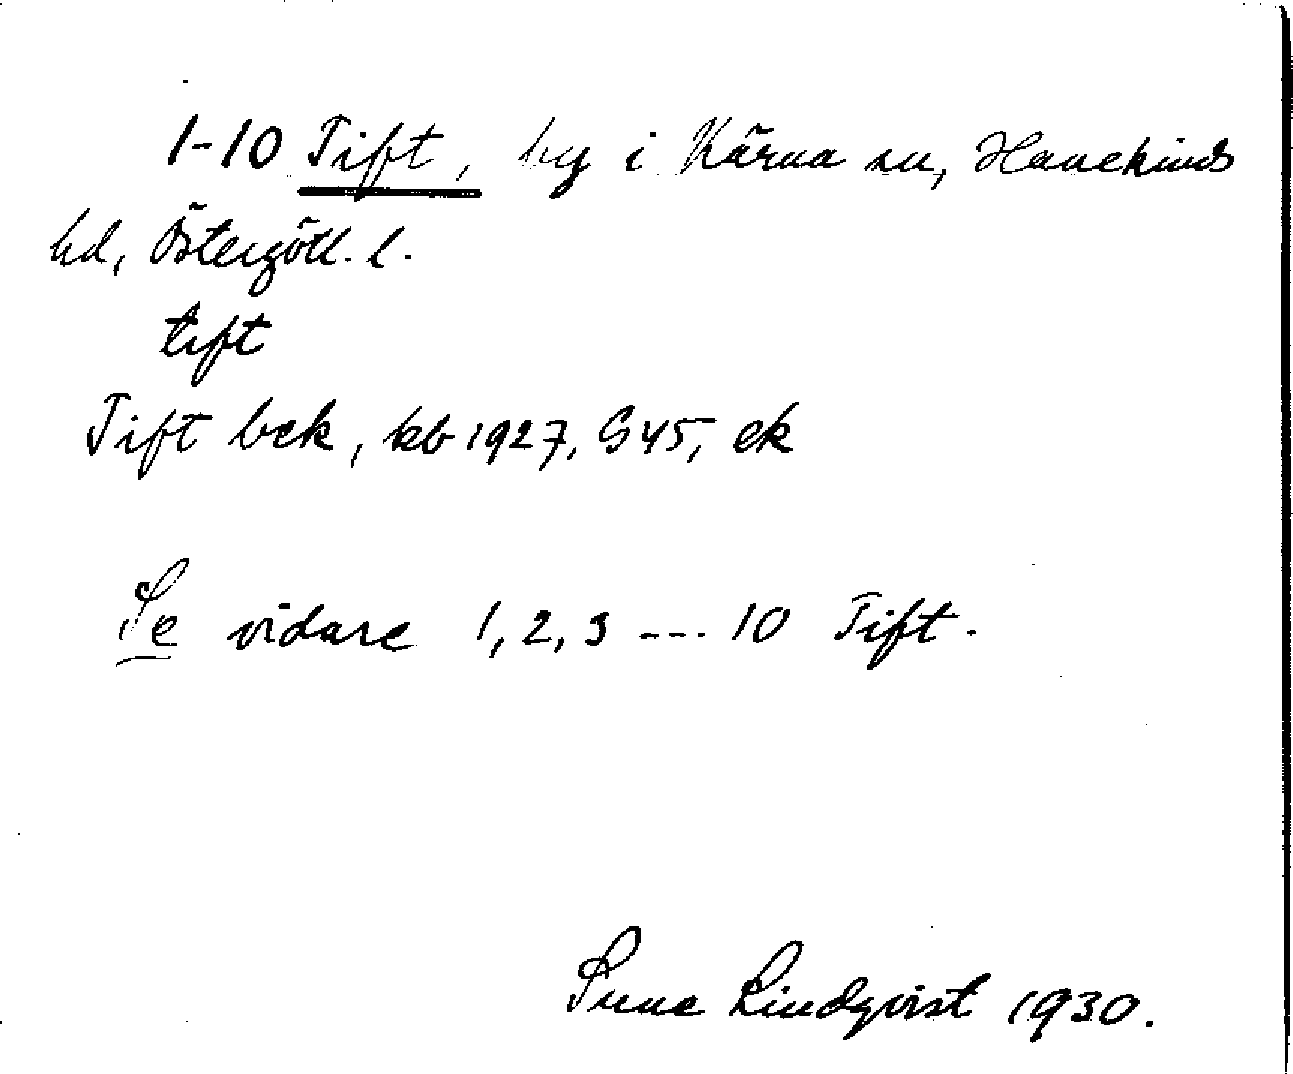 1-10 Tift, by i Kärna sn, Hanekinds
hd, Östergötl. l.
tift
Tift bek, kb 1927, S 45, ek
Se vidare 1, 2, 3 --- 10 Tift.
Sune Lindqvist 1930.